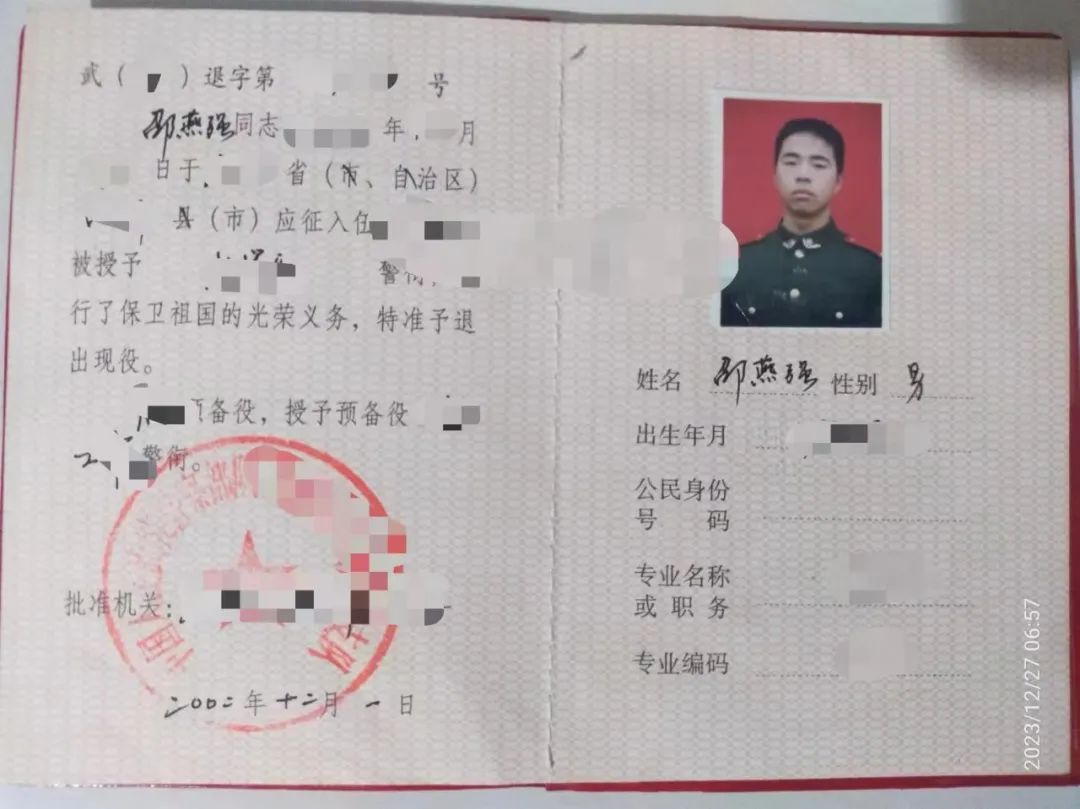 武（ ）退字第 号
邵燕强同志 年 月
日于 省（市、自治区）
县（市）应征入伍
被授予 警衔，
行了保卫祖国的光荣义务，特准予退
出现役。
预备役，授予预备役
警衔。
批准机关：
二00二年十二月一日
姓名 邵燕强 性别 男
出生年月
公民身份
号 码
专业名称
或职务
专业编码
2023/12/27 06:57